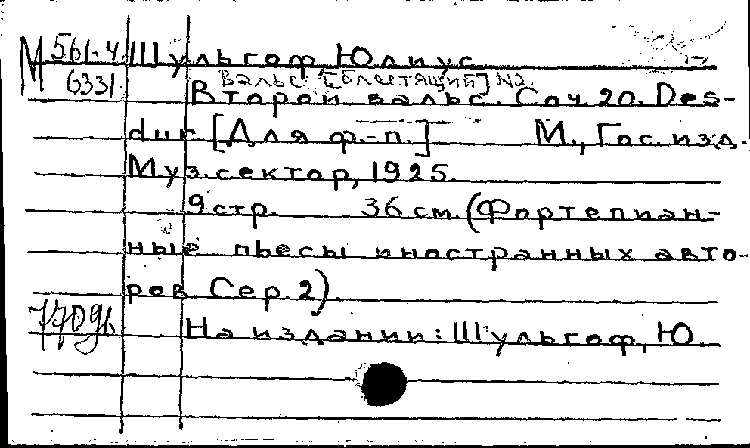 М 561-4 Шульгоф, Юлиус
6331 Вальс [блестящий] N2.
Второй вальс. Соч. 20. Des-
dur [Для ф.-п.] М., Гос. изд.
Муз. сектор, 1925.
9 стр. 36 см. (Фортепиан-
ные пьесы иностранных авто-
ров Сер. 2).
На издании: Шульгоф, Ю.